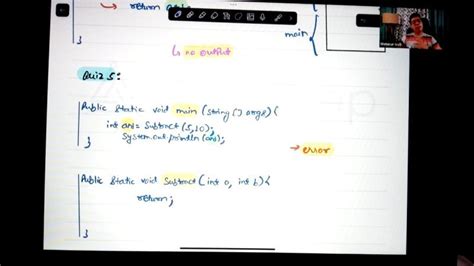 return ans;
main
}
↳ no output
Quiz 5:
Public static void main (String [] args) {
int ans = Subtract (5,10);
System.out.println (ans);
→ error
}
Public static void Subtract (int a, int b) {
return;
}